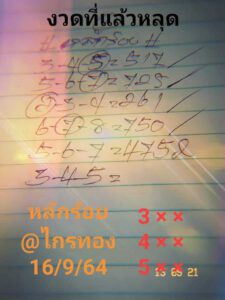 งวดที่แล้วหลุด
# หลักร้อย #
3-4(5)=517 /
5-6(7)=725 /
(2)3-4=261 /
6(7)-8=750 /
5-6-7=4758
3-4-5=
หลักร้อย 3 × ×
@ไกรทอง 4 × ×
16/9/64 5 × ×